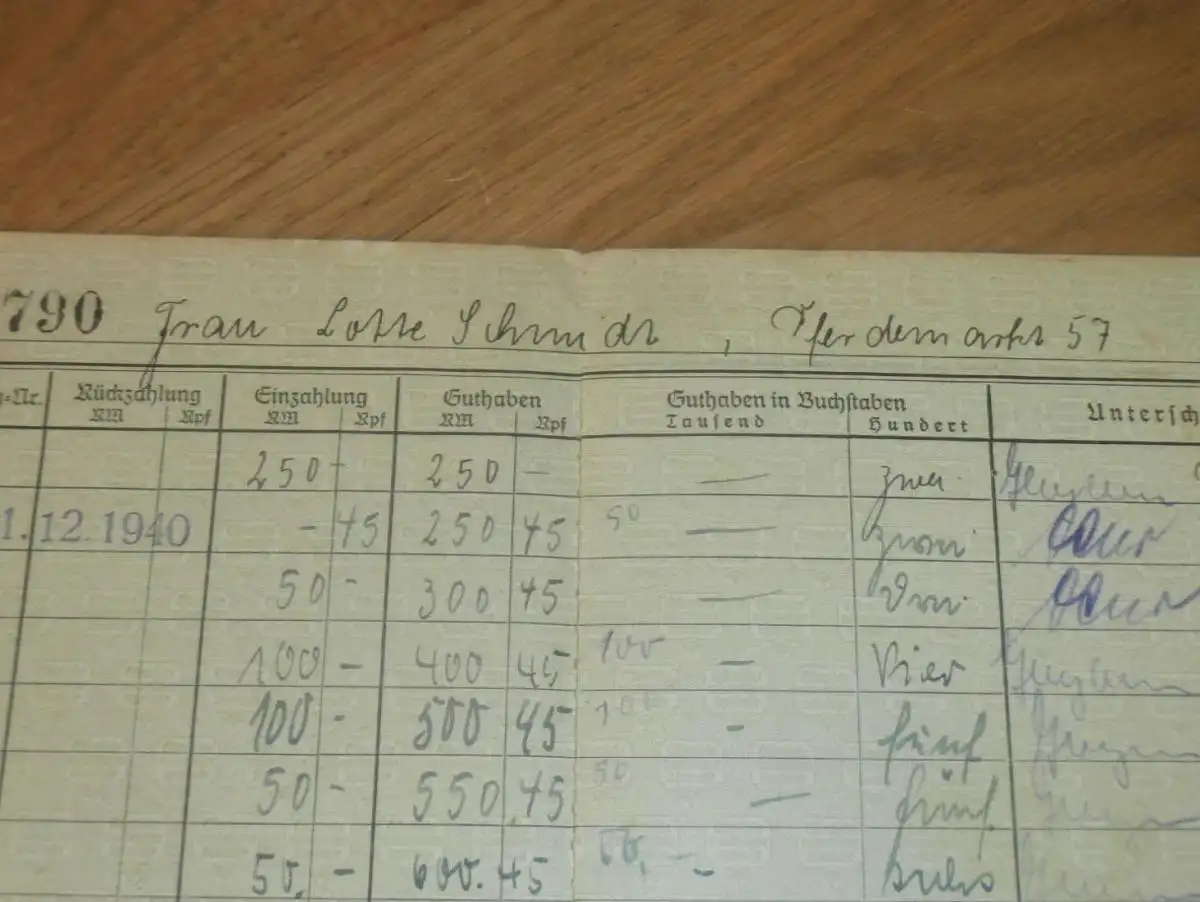 790 Frau Lotte Schmidt, Pferdemarkt 57
g=Nr. Rückzahlung Einzahlung Guthaben Guthaben in Buchstaben Untersch
RM Rpf RM Rpf RM Rpf Tausend Hundert
250 - 250 - — zwei
1.12.1940 - 45 250 45 50 — zwei
50 - 300 45 — Drei
100 - 400 45 100 — Vier
100 - 500 45 100 - fünf
50 - 550 45 50 — fünf
50. - 600. 45 50. - sechs